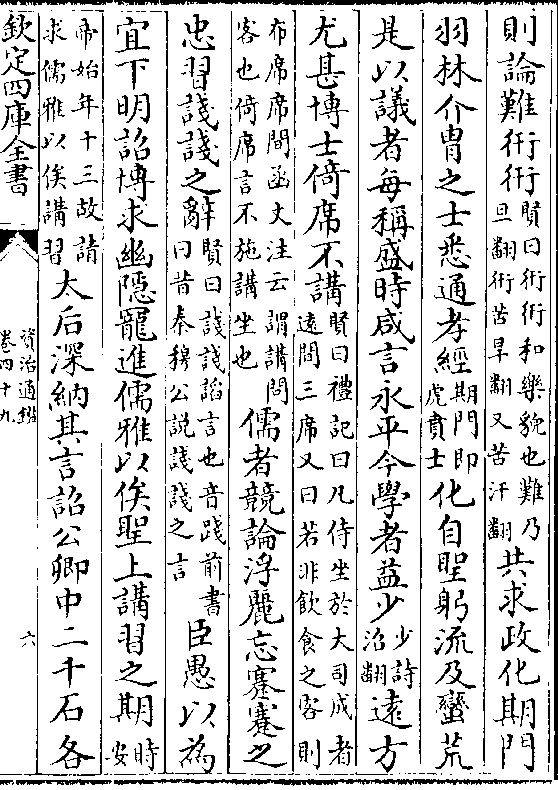 則論難衎衎賢曰衎衎和樂貌也難乃旦翻衎苦旱翻又苦汗翻共求政化期門
羽林介胄之士悉通孝經期門即虎賁士化自聖躬流及蠻荒
是以議者每稱盛時咸言永平今學者益少少詩沼翻遠方
尤甚博士倚席不講賢曰禮記曰凡侍坐於大司成者遠間三席又曰若非飲食之客則
布席席間函丈注云謂講問客也倚席言不施講坐也儒者競論浮麗忘蹇蹇之
忠習諓諓之辭賢曰諓諓諂言也音踐前書曰昔秦穆公説諓諓之言臣愚以為
宜下明詔博求幽隠寵進儒雅以俟聖上講習之期時安
帝始年十三故請求儒雅以俟講習太后深納其言詔公卿中二千石各
欽定四庫全書
資治通鑑
卷四十九
六